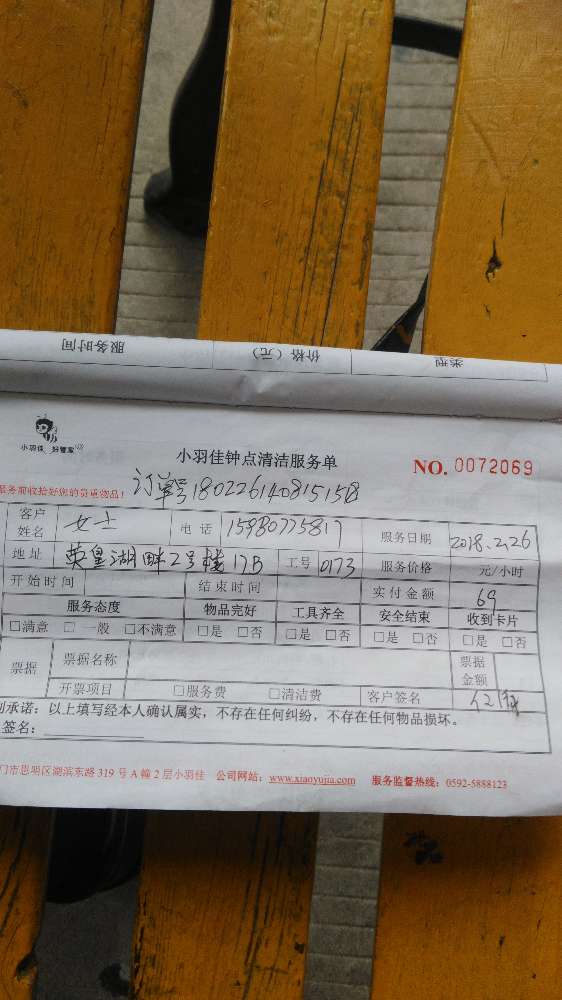 服务时间 价格(元) 类型
小羽佳 好管家
小羽佳钟点清洁服务单
NO. 0072069
服务前收拾好您的贵重物品!
订单号18022614081515
客户姓名 女士 电话 15980775817 服务日期 2018.2.26
地址 英皇湖畔2号楼17B 工号 0173 服务价格 元/小时
开始时间 结束时间 实付金额 69
服务态度 物品完好 工具齐全 安全结束 收到卡片
□满意 □一般 □不满意 □是 □否 □是 □否 □是 □否 □是 □否
票据 票据名称 票据金额
开票项目 □服务费 □清洁费 客户签名
承诺:以上填写经本人确认属实,不存在任何纠纷,不存在任何物品损坏。
签名:
门市思明区湖滨东路319号A幢2层小羽佳 公司网站:www.xiaoyujia.com 服务监督热线:0592-5888123